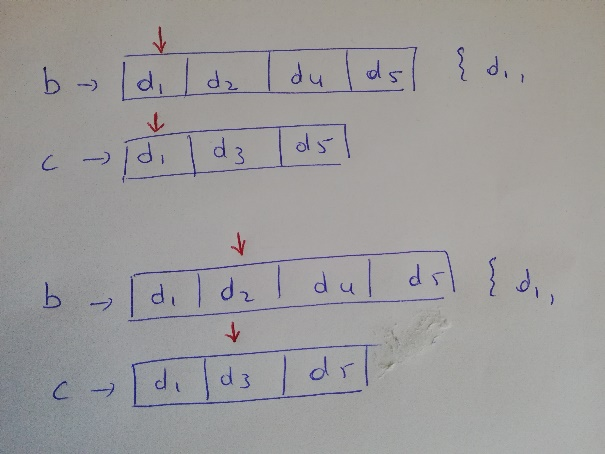 b → d1 | d2 | d4 | d5 { d1,
c → d1 | d3 | d5
b → d1 | d2 | d4 | d5 { d1,
c → d1 | d3 | d5